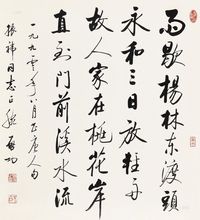 雨歇楊林東渡頭
永和三日放輕舟
故人家在桃花岸
直到門前溪水流
一九九〇年八月書唐人句
同志正 啟功